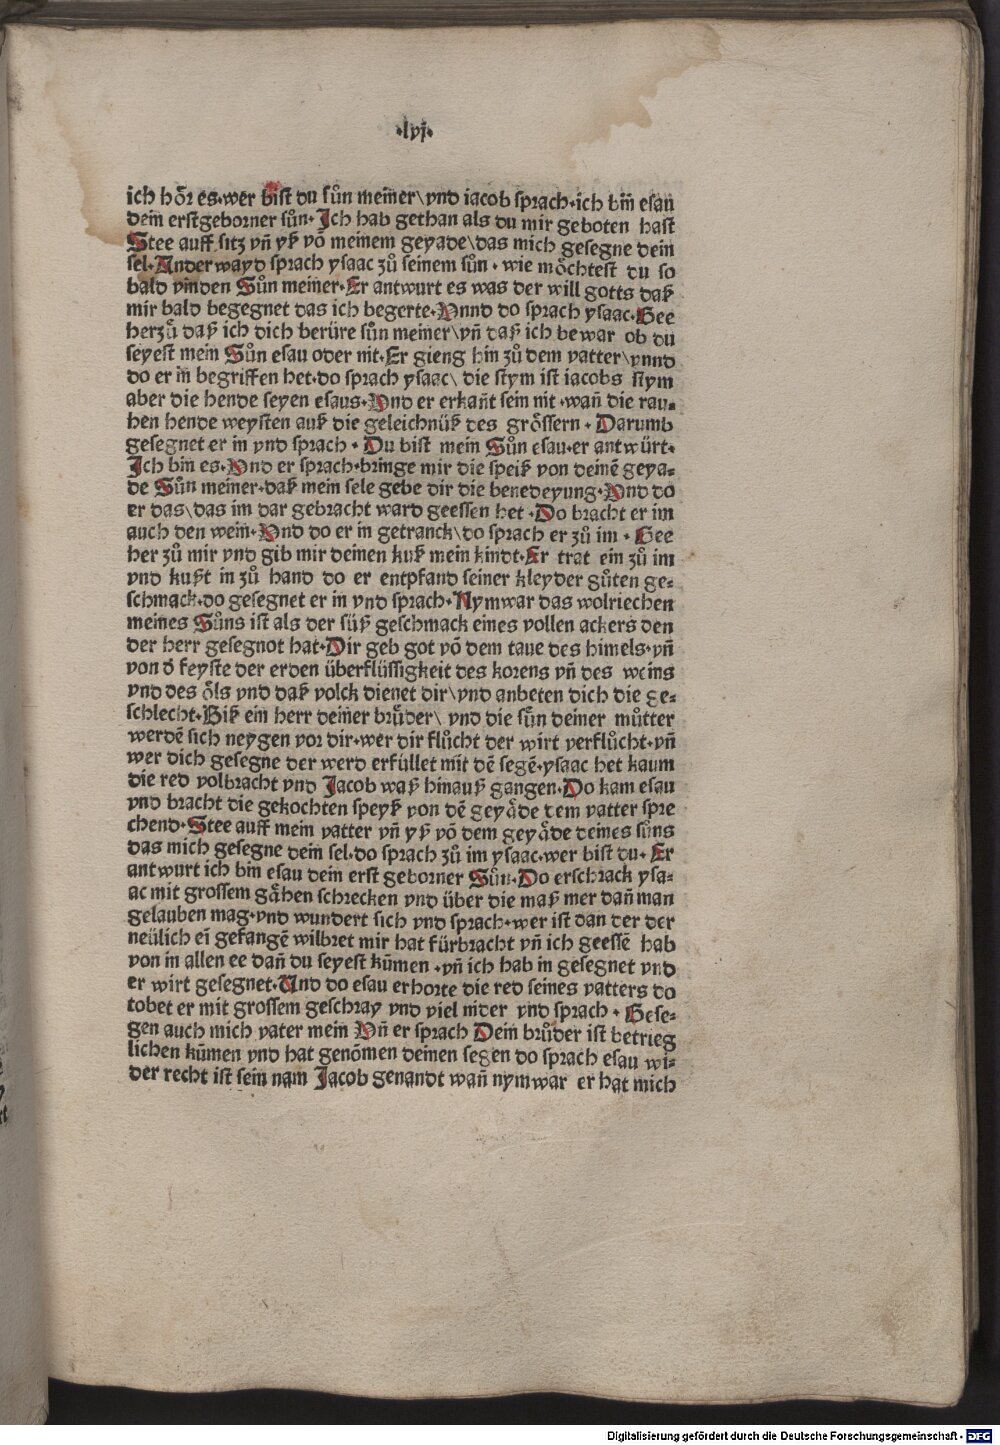 ·lvj·
ich hoͤr es·wer bist du suͦn meiner\vnd iacob sprach·ich bin esau
dein erstgeborner suͦn·Ich hab gethan als du mir geboten hast
Stee auff sitz vñ yß võ meinem geyade\das mich gesegne dein
sel·Anderwayd sprach ysaac zuͦ seinem suͦn·wie moͤchtest du so
bald vinden Suͦn meiner·Er antwurt es was der will gotts daß
mir bald begegnet das ich begerte·Vnnd do sprach ysaac·Gee
herzuͦ daß ich dich berüre suͦn meiner\vñ daß ich bewar ob du
seyest mein Suͦn esau oder nit·Er gieng hin zuͦ dem vatter\vnnd
do er in begriffen het·do sprach ysaac\ die stym ist iacobs stym
aber die hende seyen esaus·Vnd er erkañt sein nit·wañ die rau⸗
hen hende weysten auß die geleichnüß des groͤssern·Darumb
gesegnet er in vnd sprach·Du bist mein Suͦn esau·er antwürt·
Ich bin es·Vnd er sprach·bringe mir die speiß von deinẽ geya⸗
de Suͦn meiner·daß mein sele gebe dir die benedeyung·Vnd do
er das\das im dar gebracht ward geessen het·Do bracht er im
auch den wein·Vnd do er in getranck\do sprach er zuͦ im·Gee
her zuͦ mir vnd gib mir deinen kuß mein kindt·Er trat ein zuͦ im
vnd kußt in zuͦ hand do er entpfand seiner kleyder guͦten ge⸗
schmack·do gesegnet er in vnd sprach·Nymwar das wolriechen
meines Suͦns ist als der süß geschmack eines vollen ackers den
der herr gesegnot hat·Dir geb got võ dem taue des himels·vñ
von d̕ feyste der erden überflüssigkeit des korens vñ des weins
vnd des oͤls vnd daß volck dienet dir\vnd anbeten dich die ge⸗
schlecht·Biß ein herr deiner bruͤder\ vnd die suͤn deiner muͦtter
werdẽ sich neygen vor dir·wer dir fluͦcht der wirt verfluͦcht·vñ
wer dich gesegne der werd erfüllet mit dẽ segẽ·ysaac het kaum
die red volbracht vnd Jacob waß hinauß gangen·Do kam esau
vnd bracht die gekochten speyß von dẽ geyaͤde dem vatter spre
chend·Stee auff mein vatter vñ yß võ dem geyaͤde deines suͦns
das mich gesegne dein sel·do sprach zuͦ im ysaac·wer bist du·Er
antwurt ich bin esau dein erst geborner Suͦn·Do erschrack ysa⸗
ac mit grossem gaͤhen schrecken vnd über die maß mer dañ man
gelauben mag·vnd wundert sich vnd sprach·wer ist dan der der
neülich ei gefangẽ wilbret mir hat fürbracht vñ ich geessẽ hab
von in allen ee dañ du seyest kũmen·vñ ich hab in gesegnet vnd
er wirt gesegnet·Und do esau erhorte die red seines vatters do
tobet er mit grossem geschray vnd viel nider vnd sprach·Gese⸗
gen auch mich vater mein Vñ er sprach Dein bruͦder ist betrieg
lichen kũmen vnd hat genõmen deinen segen do sprach esau wi⸗
der recht ist sein nam Jacob genandt wañ nymwar er hat mich
Digitalisierung gefördert durch die Deutsche Forschungsgemeinschaft - DFG